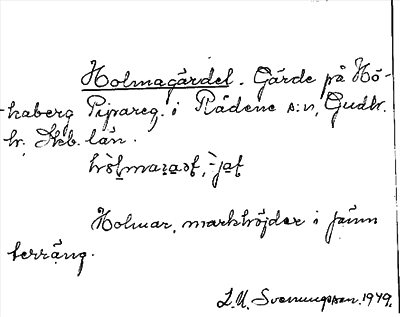 Holmagärdet. Gärde på Hö-
kaberg Pipareg. i Rådene s:n, Gudh.
h. Skb. län.
Holmar, markhöjder i jämn
terräng.
L.U. Svenungsson. 1949.